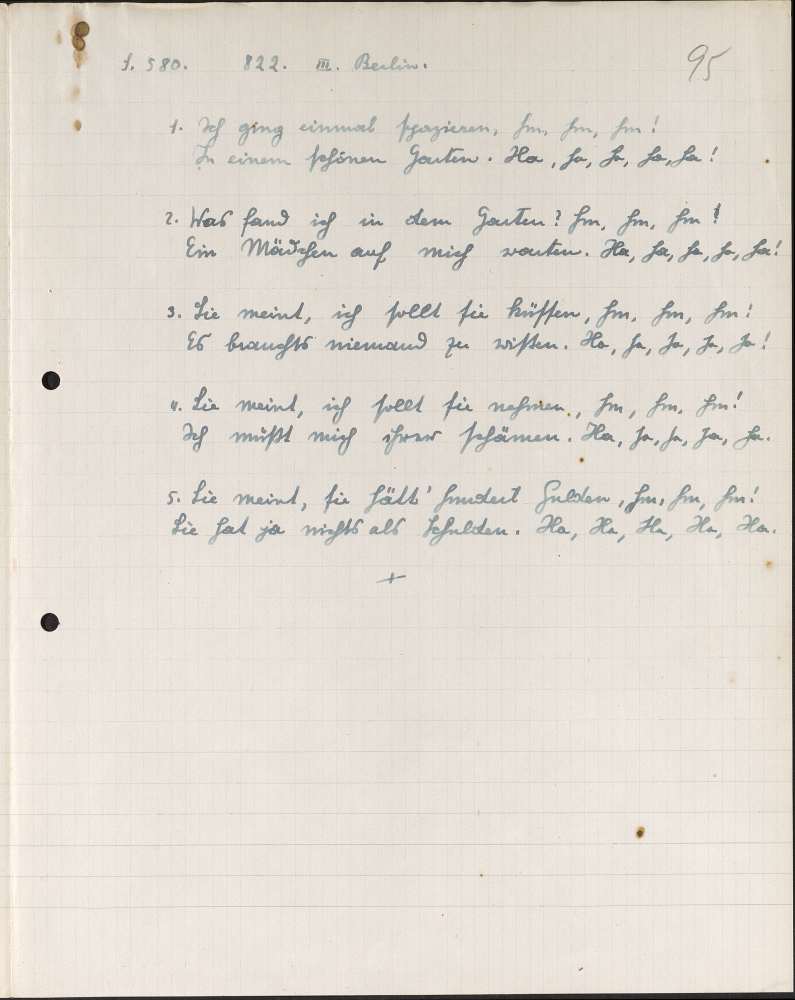 S. 580. 822. III. Berlin. 95
1. Ich ging einmal spazieren, hm, hm, hm!
In einem schönen Garten. Ha, ha, ha, ha, ha!
2. Was fand ich in dem Garten? hm, hm, hm!
Ein Mädchen auf mich warten. Ha, ha, ha, ha, ha!
3. Sie meint, ich sollt sie küssen, hm, hm, hm!
Es brauchts niemand zu wissen. Ha, ha, ha, ha, ha!
4. Sie meint, ich sollt sie nehmen, hm, hm, hm!
Ich müßt mich ihrer schämen. Ha, ha, ha, ha, ha.
5. Sie meint, sie hätt' hundert Gulden, hm, hm, hm!
Sie hat ja nichts als Schulden. Ha, Ha, Ha, Ha, Ha.
+